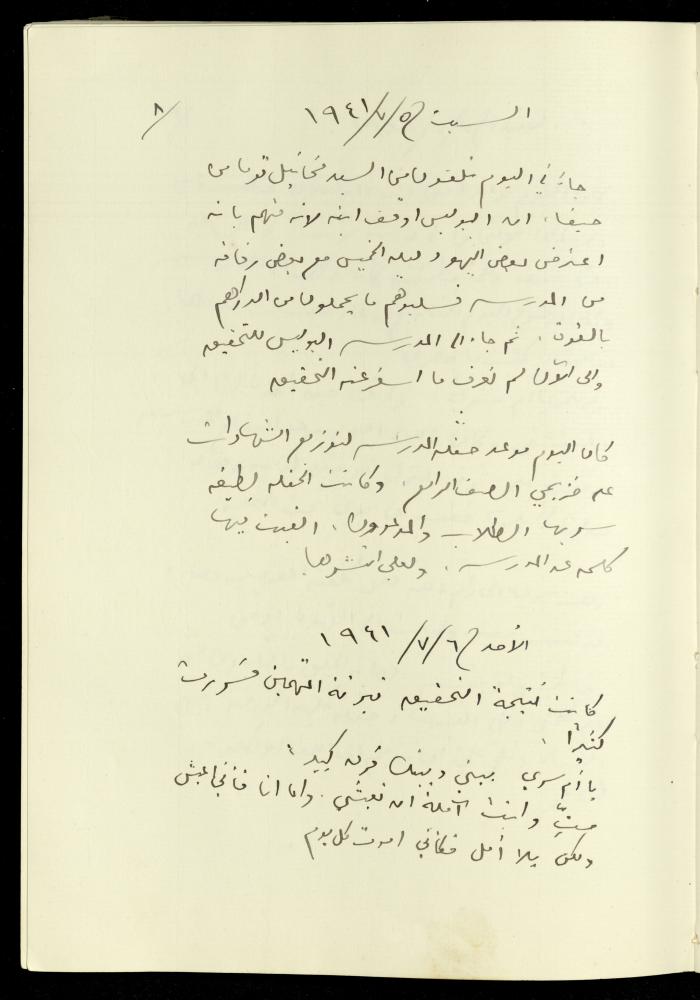 ٨/
السبت في ٥/٧/١٩٤١
جاءني اليوم تلفون من السيد مخائيل توما من
حيفا، ان البوليس اوقف ابنه لانه متهم بانه
اعترض بعض اليهود ليلة الخميس مع بعض رفاقه
من المدرسه فسلبوهم ما يحملون من الدراهم
بالقوة. ثم جاء الى المدرسه البوليس للتحقيق
والى الآن لم نعرف ما اسفر عنه التحقيق
كان اليوم موعد حفلة المدرسه لتوزيع الشهادات
على خريجي الصف الرابع. وكانت الحفله لطيفه
سر بها الطلاب والمدعوون. القيت فيها
كلمه عن المدرسه. ولعلي انشرها
الأحد في ٦/٧/١٩٤١
كانت نتيجة التحقيق تبرئة المتهمين فسررت
كثيراً.
يا ام سري بيني وبينك فرق كبير؛
متِّ وانت آملة ان تعيشي. واما انا فاني اعيش
ولكن بلا أمل فكأني اموت كل يوم